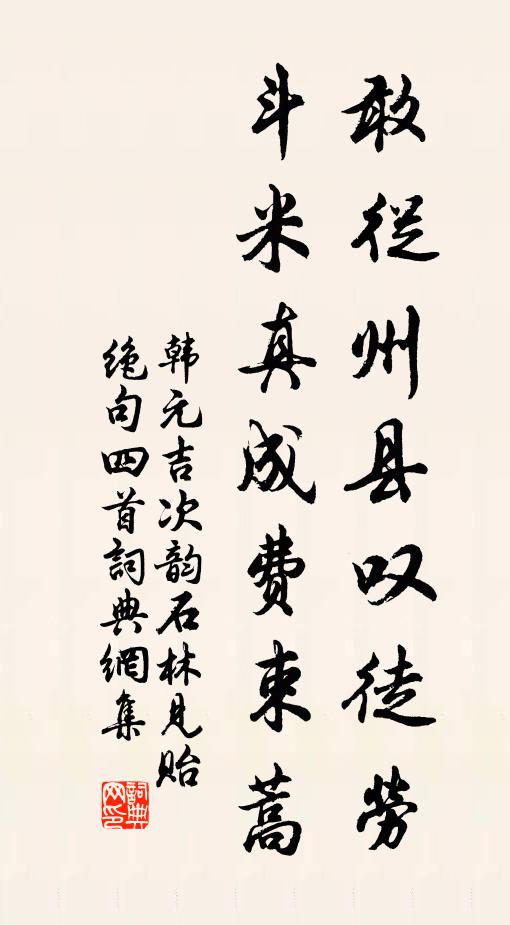 敢從州县叹徒劳
斗米真成费束蒿
韩元吉次韵石林見贻
绝句四首詞典網集
詞典
网印